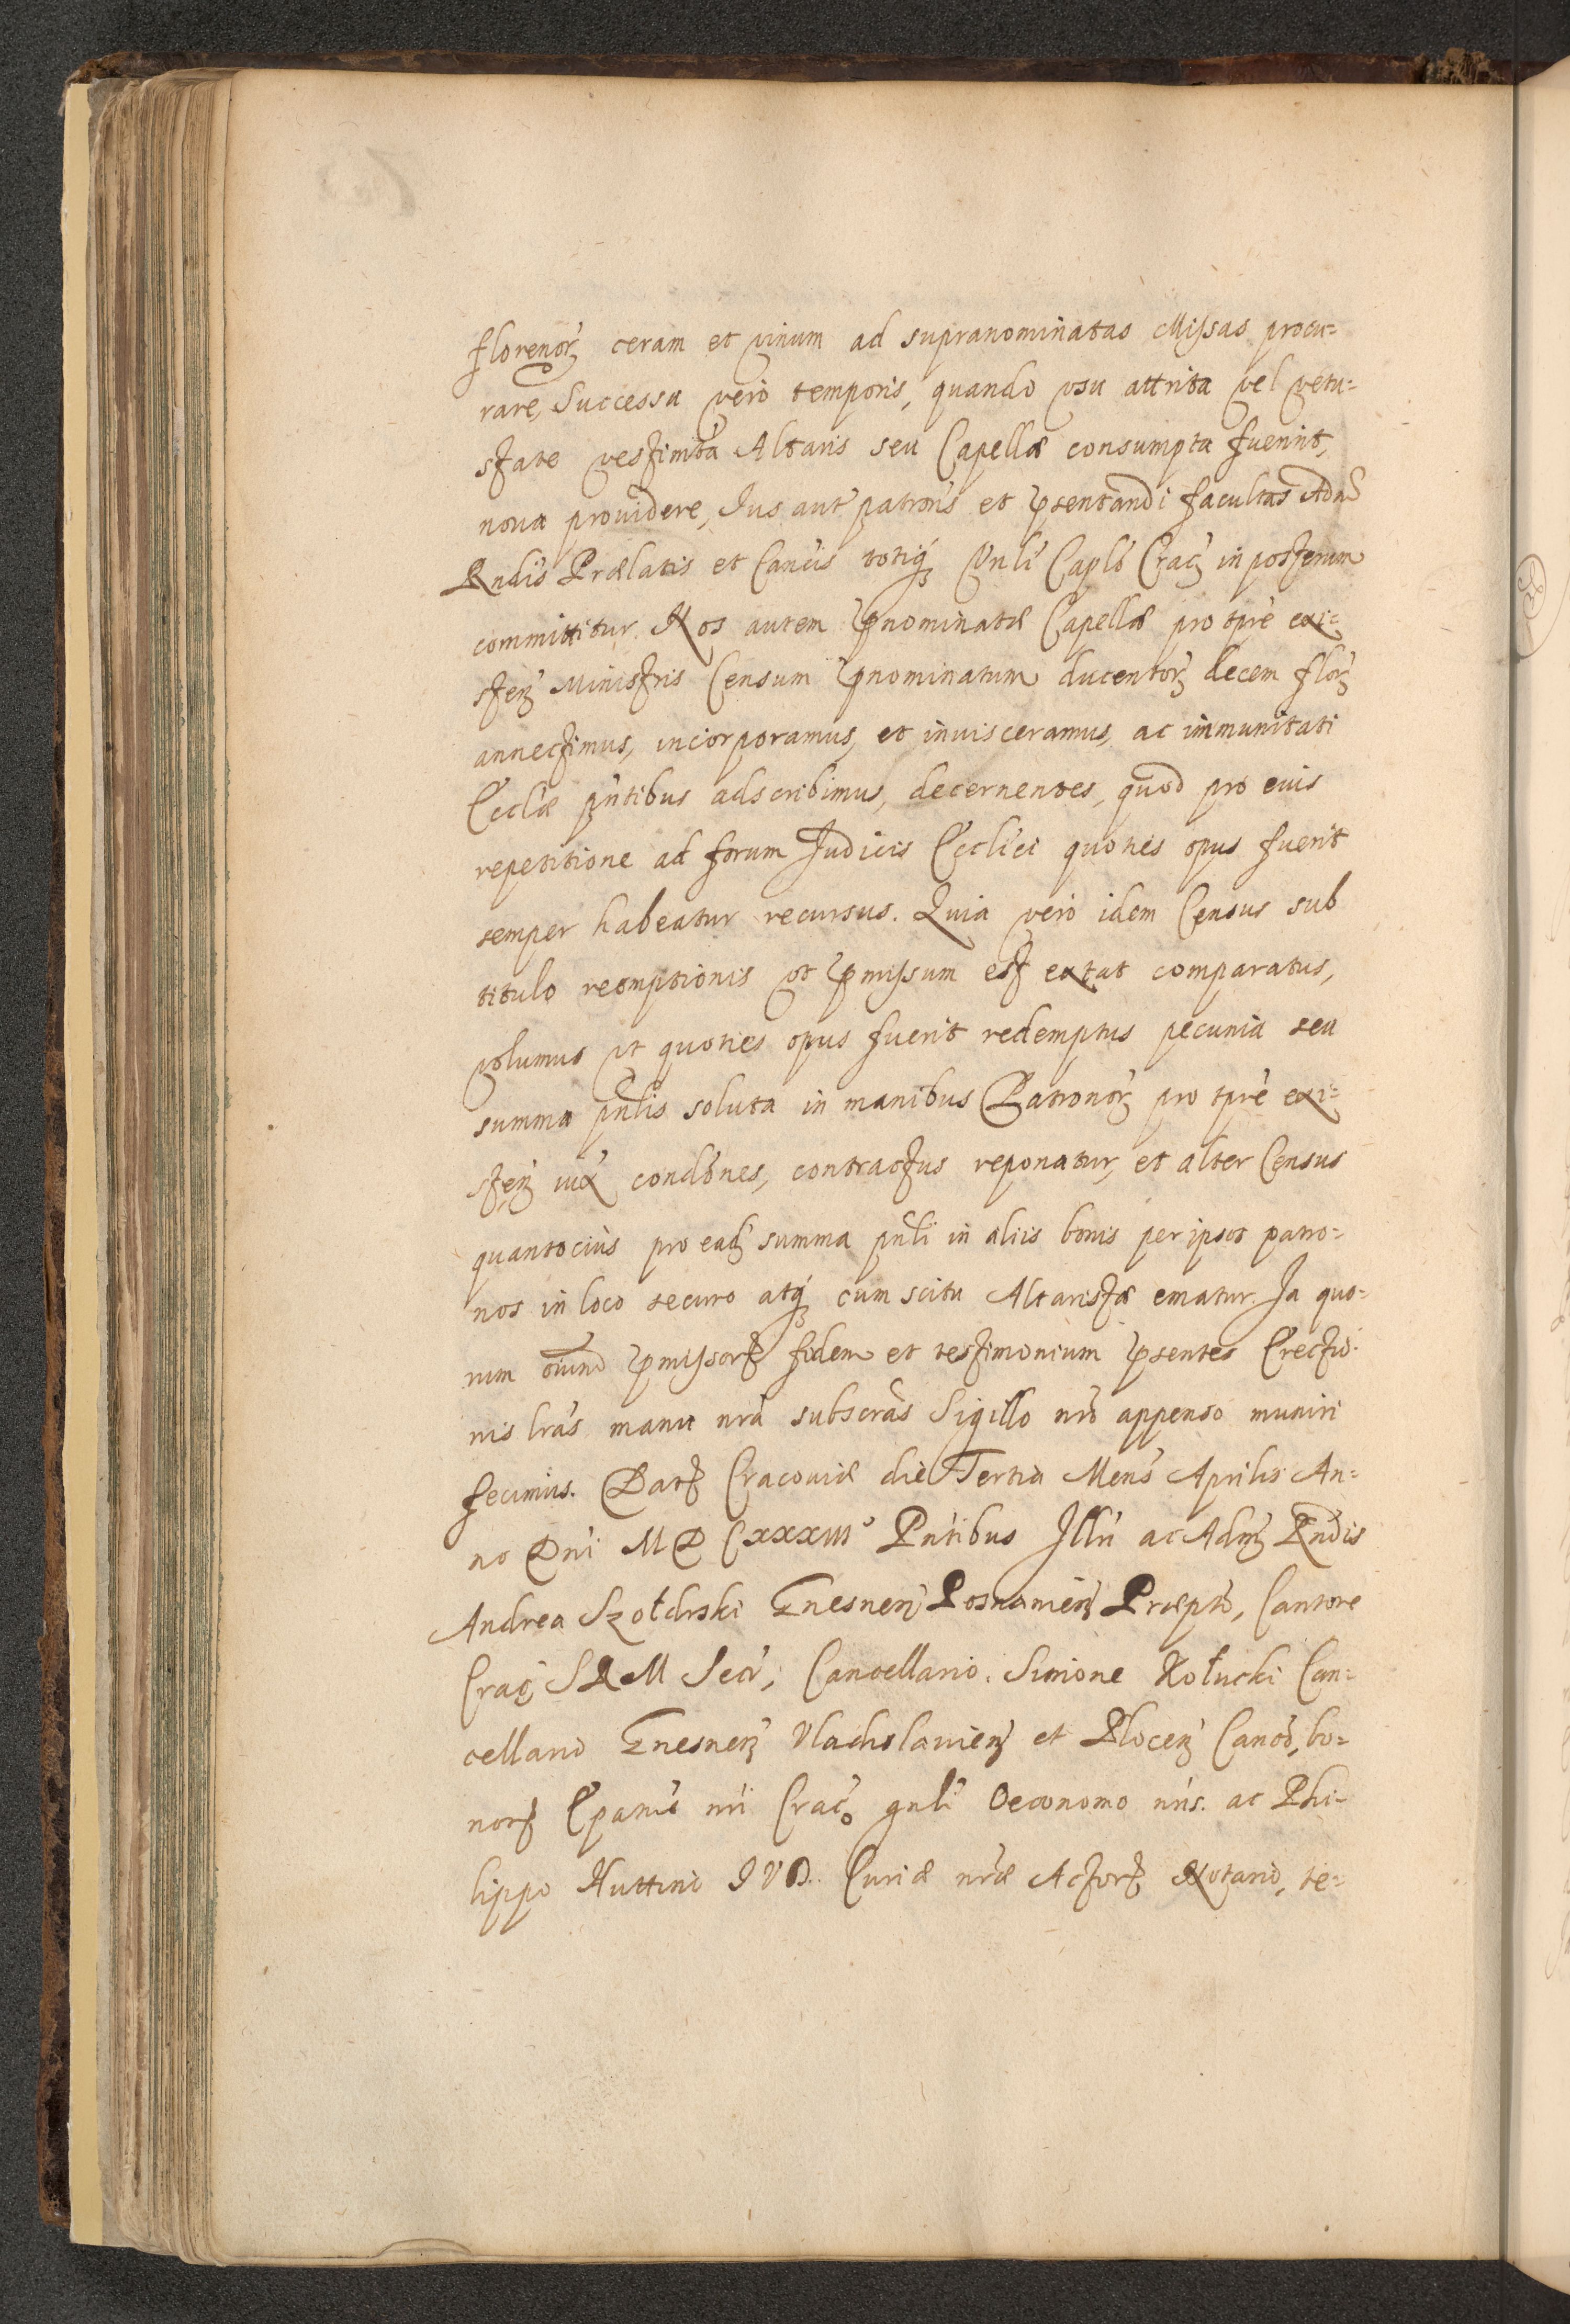 florenoꝝ ceram et vinum ad supranominatas Missas procu=
rare, Successu verò temporis, quando vsu attrita vel vetu=
state vestimta Altaris seu Capellæ consumpta fuerint,
noua prouidere, Ius aut patronis et pꝛsentandi facultas Adm
Rndis Prælatis et Cancis totiqꝫ Vnli Caplo Crac in posterum
committitur. Nos autem pꝛnominatæ Capellæ pro tpre exi=
sten Ministris Censum pꝛnominatum ducentoꝝ decem floꝝ
annectimus, incorporamus, et inuisceramus, ac immunitati
Ecclæ pntibus adscribimus, decernentes, quod pro eius
repetitione ad forum Judicis Ecclici quoties opus fuerit
semper habeatur recursus. Quia verò idem Census sub
titulo reemptionis vt pꝛmissum est extat comparatus,
volumus vt quoties opus fuerit redemptus pecunia seu
summa pnlis soluta in manibus Patronoꝝ pro tpre exi=
sten iux condónes, contractus reponatur, et alter Census
quantociùs pro eadꝫ summa pnli in aliis bonis per ipsos patro=
nos in loco securo atqꝫ cum scitu Altaristæ ematur. In quo=
rum oium pꝛmissoꝝ fidem et testimonium pꝛsentes Erectio=
nis lras manu nra subscras Sigillo nro appenso muniri
fecimus. Datꝫ Cracouiæ die Tertia Mens Aprilis An=
no Dni M D CXXXIII° Pntibus Illri ac Admꝫ Rndis
Andrea Szołdrski Gnesnen Posnanien Præpto, Cantore
Crac, S R M Secr, Cancellario. Simone Kołucki Can=
cellario Gnesnen Vladislauien et Plocen Canco, bo=
noꝝ Epatus nri Crac gnli Oeconomo nris. ac Phi=
lippo Huttini I V D. Curiæ nræ Actoꝝ Notario, te=